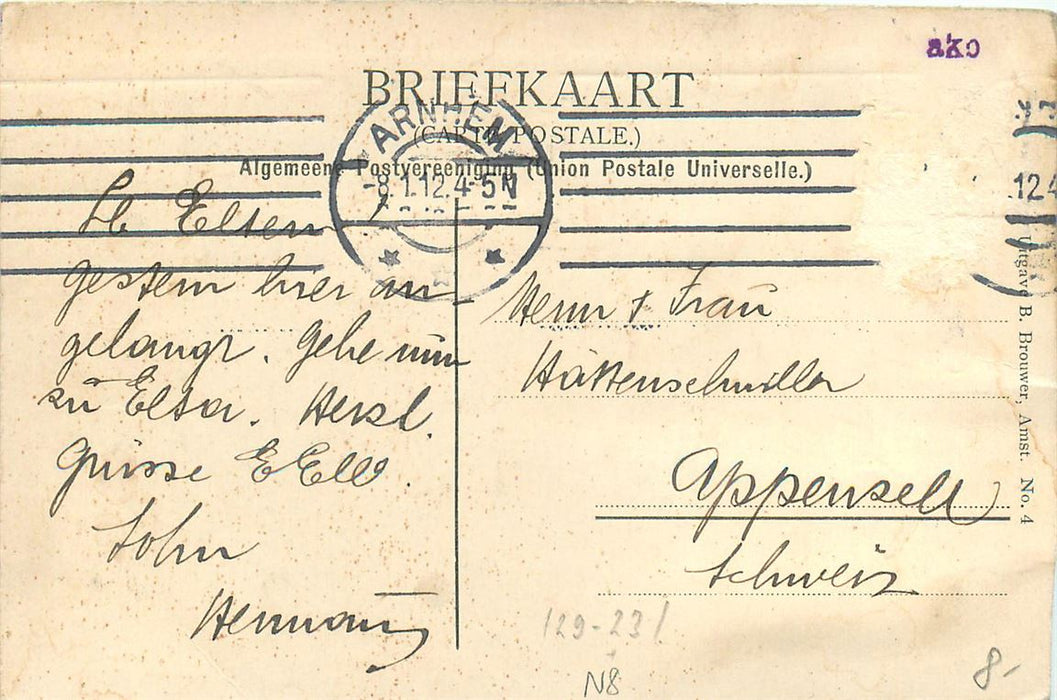 ako
BRIEFKAART
(CARTE POSTALE.)
Algemeene Postvereeniging (Union Postale Universelle.)
ARNHEM
-8.1.12.4-5N
12.4
L. Eltern
gestern hier an-
gelangt. Gehe nun
zu Elsa. Herzl.
Grüsse
Sohn
Hermann
Herrn & Frau
Hättenschwiller
Appenzell
Schweiz
Uitgave B. Brouwer, Amst. No. 4
129-231
N8
8-